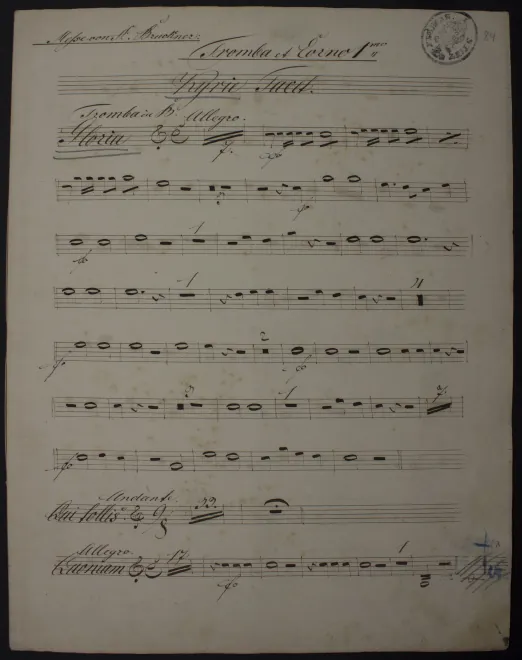 Messe von A. Bruckner.
Tromba et Corno 1mo
84
Kyrie Tacet.
Tromba in B. Allegro.
Gloria
7.
fo
1
fo
fo
1
11
2
fo
fo
3
1
7.
fo
Andante.
Qui tollis
33.
Allegro.
Quoniam
17
1
fo